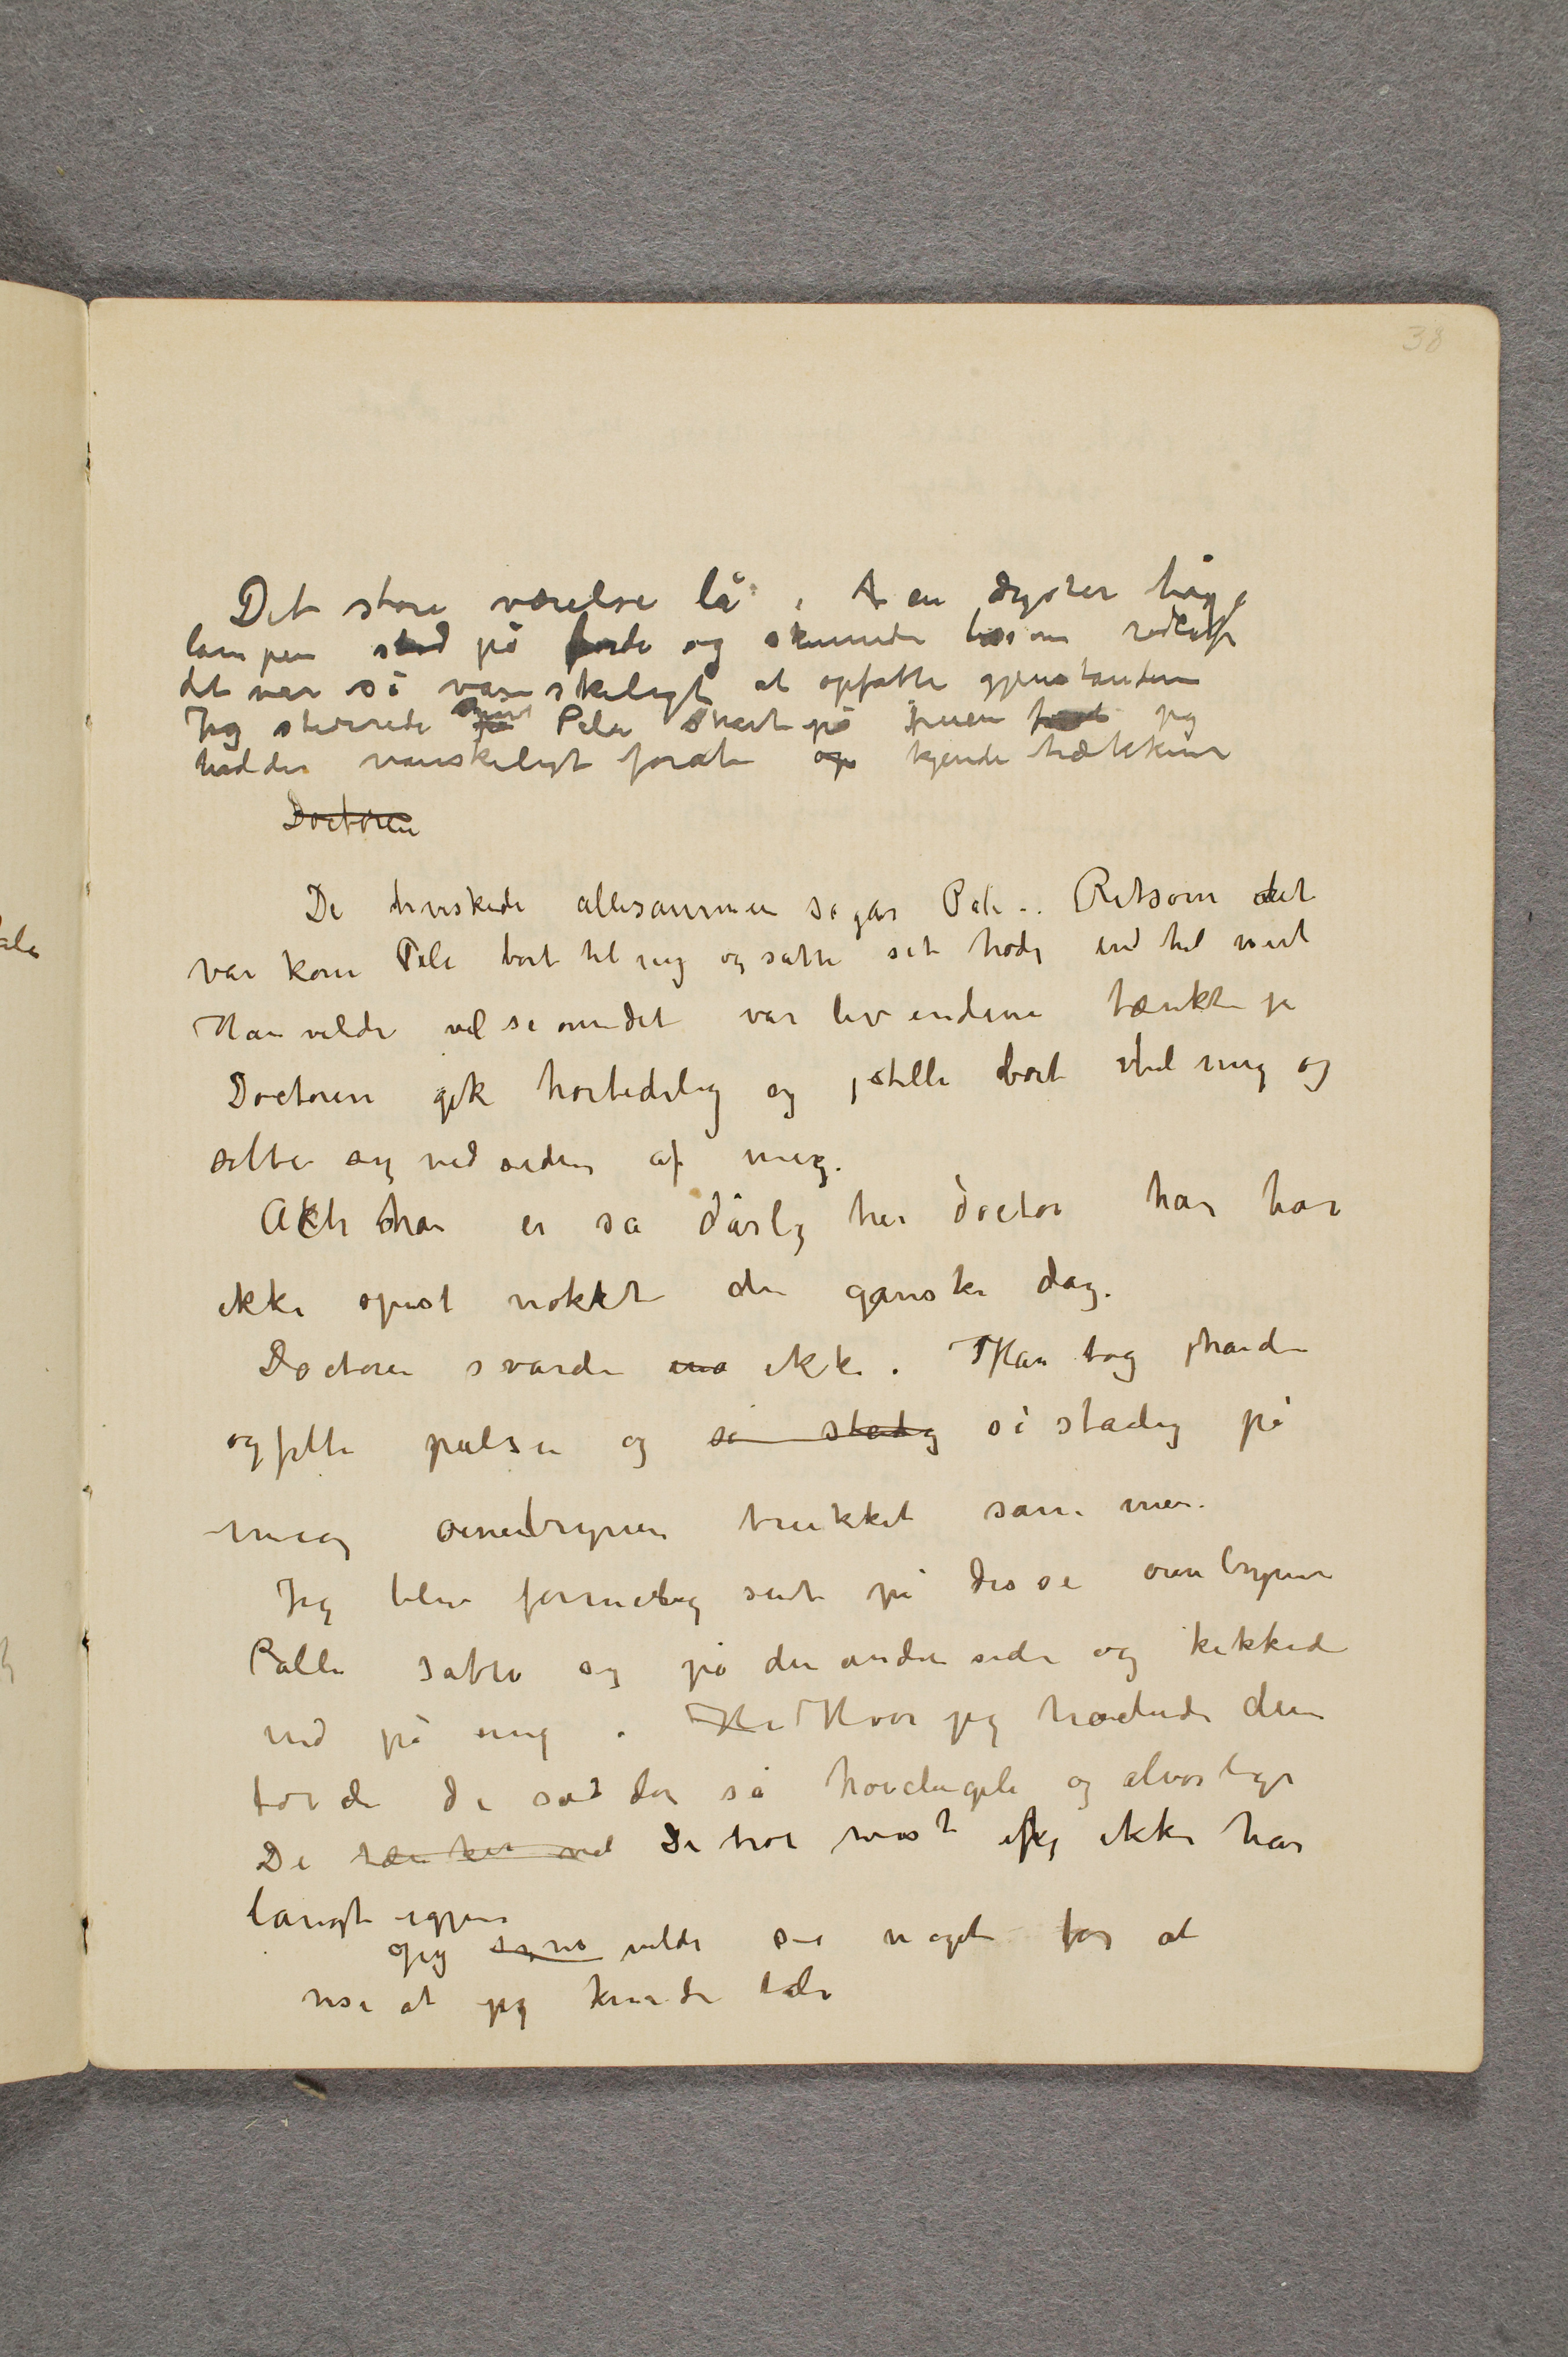 38
Det store værelse lå i en dyster tåge
lampen stod på bordet og skinnede lissom rødlig
det var så vanskeligt at opfatte gjenstandene
Jeg stirrede snart på Pelle snart på fruen jeg
hadde vanskeligt forat kjende trækkene
Doctoren
De hviskede allesammen sogar Palle. Retsom det
var kom Pelle bort til mig og satte sit hode ind til mit
Han vilde vel se om det var liv endnu tænkte je
Doctoren gik høitidelig og stille bort til mig og
satte sig ved siden af mig.
Ach han er så dårlig her doctor han har
ikke spist nokket den ganske dag.
Doctoren svarde ikke. Han tog hånden
og følte pulsen og så stadig så stadig på
mig øinebrynene trukket sammen.
Jeg blev formelig sint på disse øinbrynene
Palle satte sig på den anden side og kikked
ned på mig. Hvor jeg hadede dem
fordi de sad der så høidelige og alvorlige
De tænker vel De tror vist jeg ikke har
langt igjen
Jeg vilde si noget for at
vise at jeg kunde tale
ale